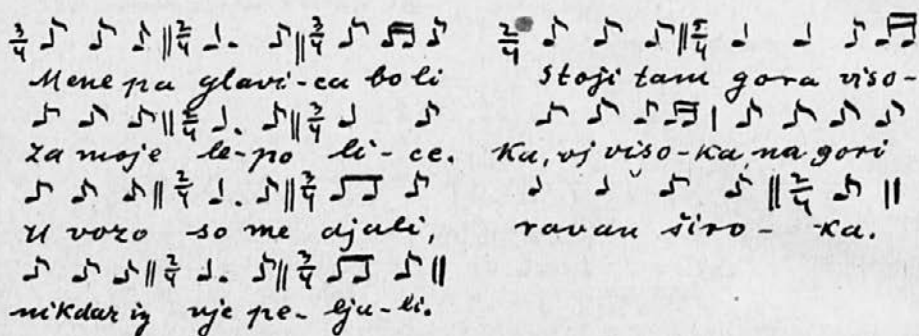 Mene pa glavi-ca boli
za moje le-po li-ce.
U vozo so me djali,
nikdar iz nje pe-lja-li.
Stoji tam gora viso-
ka, vj viso-ka, na gori
ravan širo-ka.